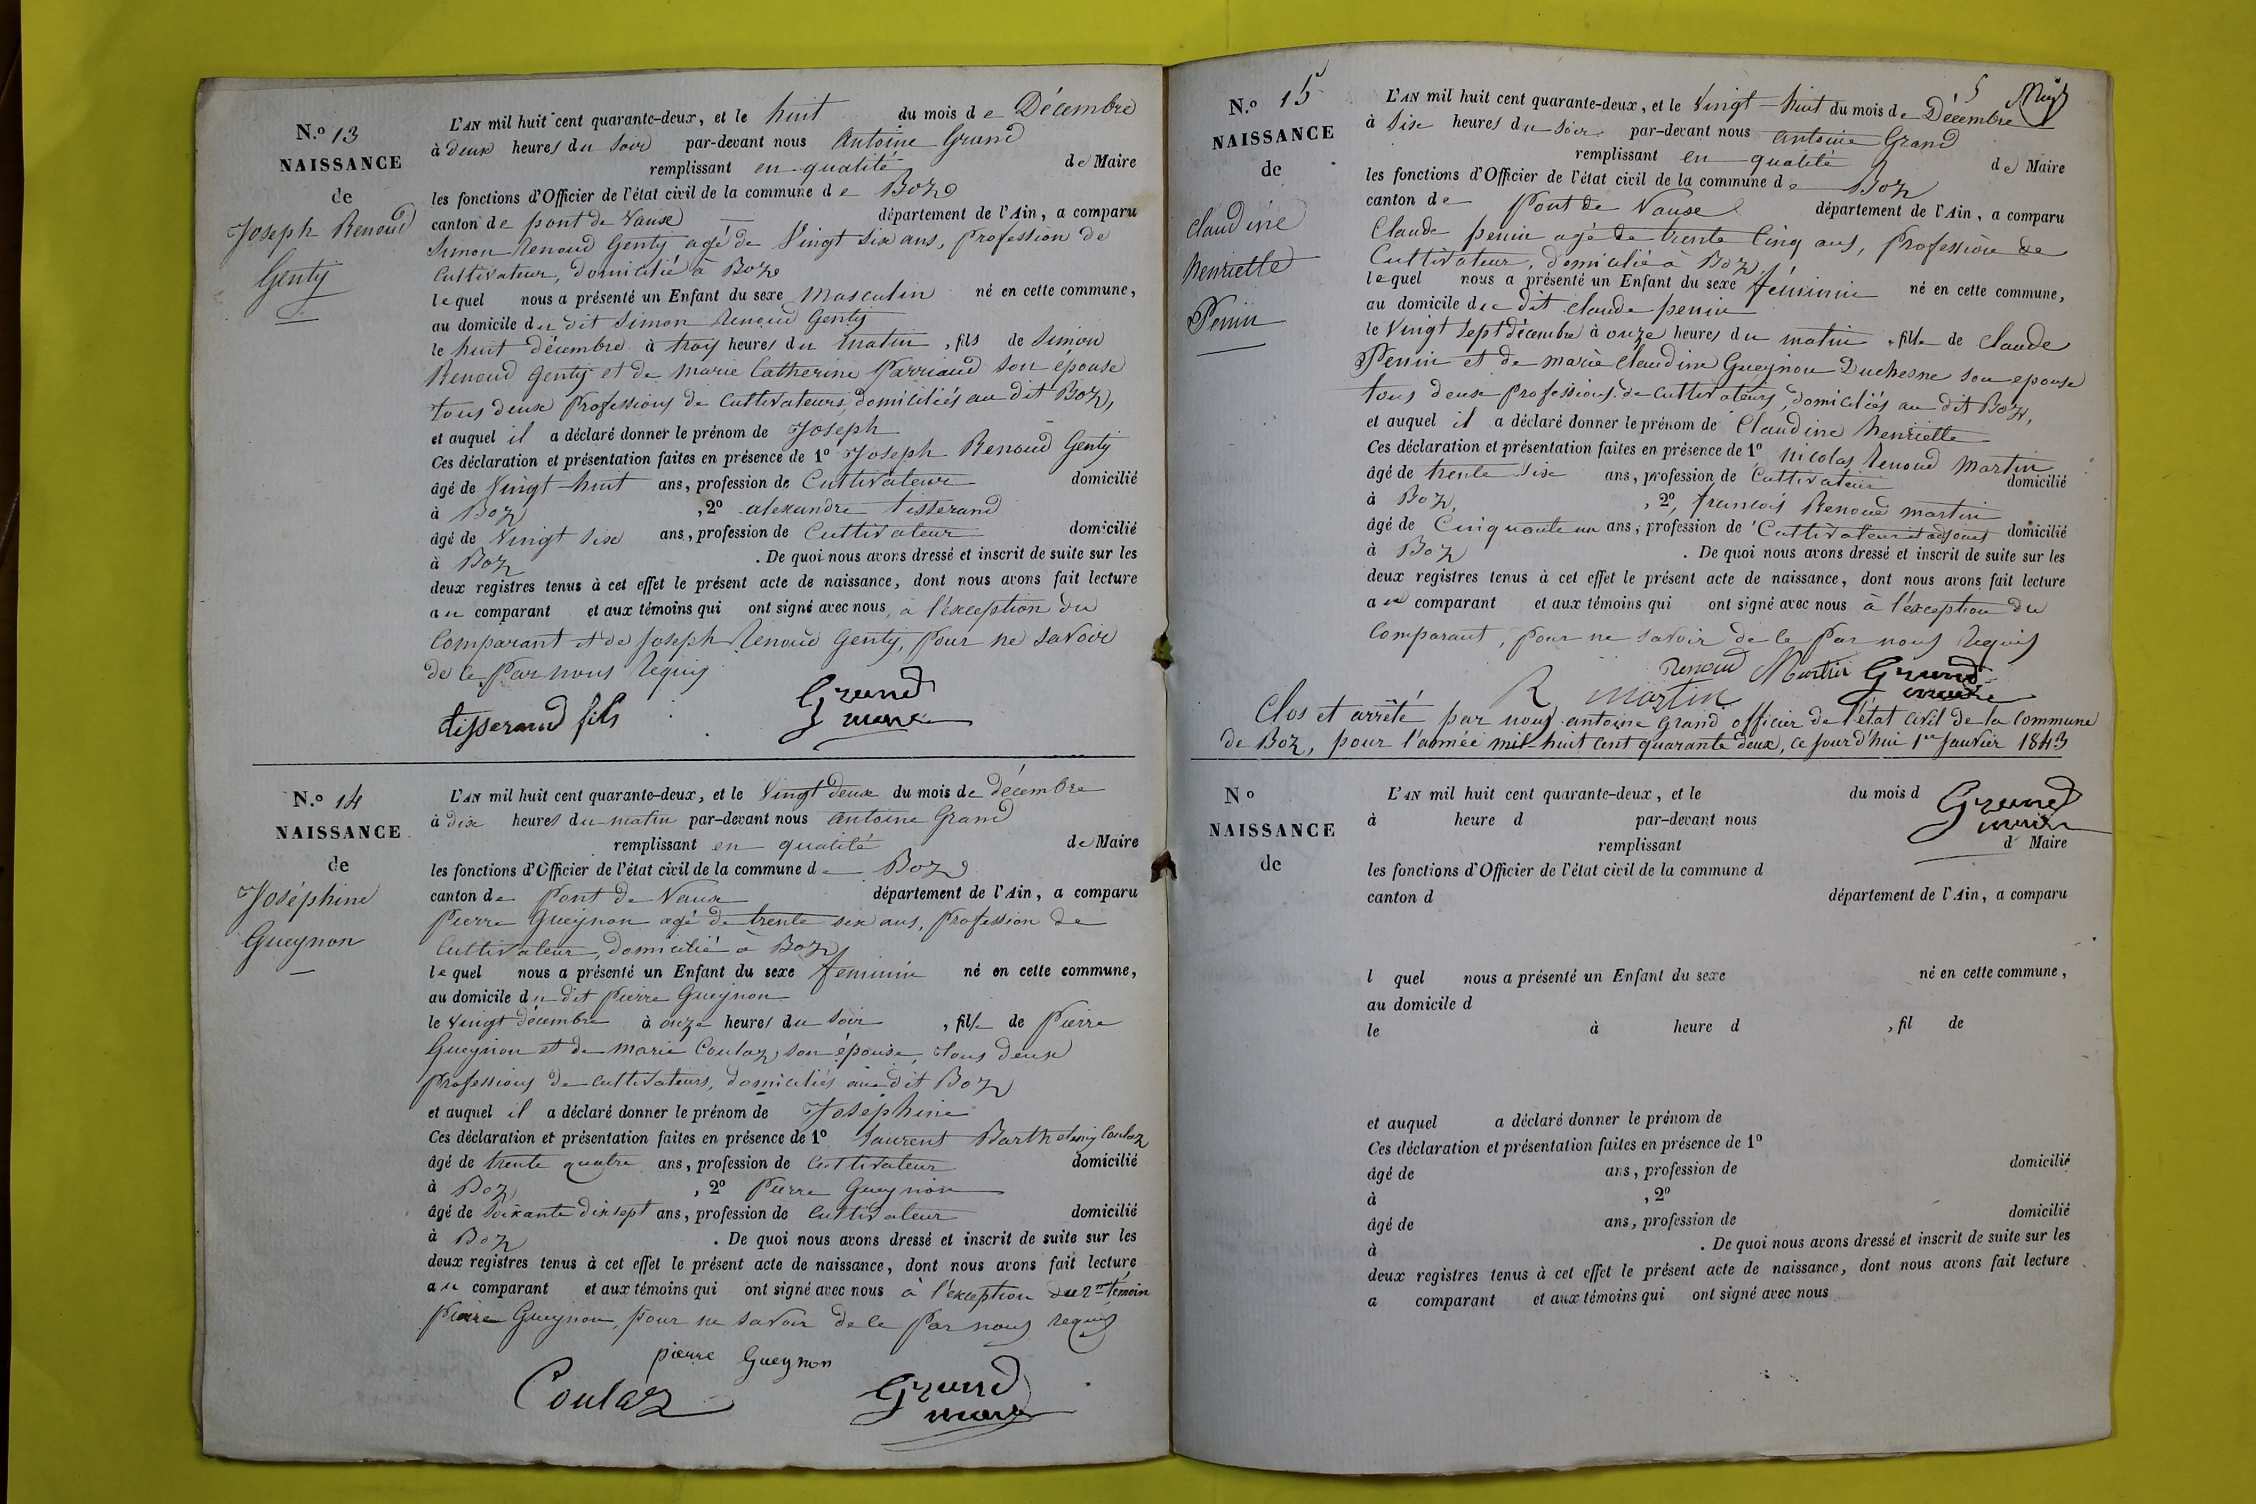 N.o 13
NAISSANCE
de
Joseph Renoud
Genty
L'AN mil huit cent quarante-deux, et le huit du mois de Décembre
à deux heures du soir par-devant nous Antoine Grand
remplissant en qualité de Maire
les fonctions d'Officier de l'état civil de la commune de Boz
canton de pont de Vaux département de l'Ain, a comparu
Simon Renoud Genty agé de Vingt six ans, profession de
Cultivateur, domicilié à Boz
lequel nous a présenté un Enfant du sexe masculin né en cette commune,
au domicile du dit Simon Renoud Genty
le huit décembre à trois heures du matin, fils de Simon
Renoud Genty et de marie Catherine Parriaud son épouse
tous deux Professions de Cultivateurs, domiciliés au dit Boz,
et auquel il a déclaré donner le prénom de Joseph
Ces déclaration et présentation faites en présence de 1o Joseph Renoud Genty
âgé de Vingt-huit ans, profession de Cultivateur domicilié
à Boz, 2o alexandre tisserand
âgé de Vingt six ans, profession de Cultivateur domicilié
à Boz. De quoi nous avons dressé et inscrit de suite sur les
deux registres tenus à cet effet le présent acte de naissance, dont nous avons fait lecture
au comparant et aux témoins qui ont signé avec nous, à l'exception du
Comparant et de Joseph Renoud Genty, pour ne savoir
de ce Par nous Requis
tisserand fils
Grand
maire
N.o 14
NAISSANCE
de
Joséphine
Gueynon
L'AN mil huit cent quarante-deux, et le Vingt deux du mois de décembre
à dix heures du matin par-devant nous antoine Grand
remplissant en qualité de Maire
les fonctions d'Officier de l'état civil de la commune de Boz
canton de Pont de Vaux département de l'Ain, a comparu
Pierre Gueynon agé de trente six ans, Profession de
Cultivateur, domicilié à Boz
lequel nous a présenté un Enfant du sexe feminin né en cette commune,
au domicile du dit Pierre Gueynon
le Vingt décembre à onze heures du soir, fille de Pierre
Gueynon et de marie Coulaz son épouse, tous deux
Professions de cultivateurs, domiciliés au dit Boz
et auquel il a déclaré donner le prénom de Joséphine
Ces déclaration et présentation faites en présence de 1o Laurent Barthelemy Coulaz
âgé de trente quatre ans, profession de Cultivateur domicilié
à Boz, 2o Pierre Gueynon
âgé de Soixante dix sept ans, profession de Cultivateur domicilié
à Boz. De quoi nous avons dressé et inscrit de suite sur les
deux registres tenus à cet effet le présent acte de naissance, dont nous avons fait lecture
au comparant et aux témoins qui ont signé avec nous à l'exception du 2me témoin
Pierre Gueynon, pour ne savoir de ce Par nous requis
pierre Gueynon
Coulaz
Grand
maire
5
N.o 15
NAISSANCE
de
Claudine
henriette
Penin
L'AN mil huit cent quarante-deux, et le Vingt-huit du mois de Décembre
à Six heures du soir par-devant nous antoine Grand
remplissant en qualité de Maire
les fonctions d'Officier de l'état civil de la commune de Boz
canton de Pont de Vaux département de l'Ain, a comparu
Claude penin agé de trente Cinq ans, Profession de
Cultivateur, domicilié à Boz,
lequel nous a présenté un Enfant du sexe féminin né en cette commune,
au domicile du dit claude penin
le Vingt sept décembre à onze heures du matin, fille de claude
Penin et de marie claudine Gueynon Duchesne son epouse
tous deux Professions de cultivateurs, domiciliés au dit Boz,
et auquel il a déclaré donner le prénom de Claudine henriette
Ces déclaration et présentation faites en présence de 1o nicolas Renoud Martin
âgé de trente six ans, profession de Cultivateur domicilié
à Boz, 2o, francois Renoud martin
âgé de Cinquante un ans, profession de Cultivateur et adjoint domicilié
à Boz. De quoi nous avons dressé et inscrit de suite sur les
deux registres tenus à cet effet le présent acte de naissance, dont nous avons fait lecture
au comparant et aux témoins qui ont signé avec nous à l'exception du
Comparant, pour ne savoir de ce Par nous Requis
Renoud Martin Grand
R martin maire
Clos et arrêté par nous antoine Grand officier de l'état civil de la commune
de Boz, pour l'année mil-huit cent quarante deux, ce jourd'hui 1er Janvier 1843
Grand
maire
No
NAISSANCE
de
L'AN mil huit cent quarante-deux, et le du mois d
à heure d par-devant nous
remplissant d Maire
les fonctions d'Officier de l'état civil de la commune d
canton d département de l'Ain, a comparu
l quel nous a présenté un Enfant du sexe né en cette commune,
au domicile d
le à heure d , fil de
et auquel a déclaré donner le prénom de
Ces déclaration et présentation faites en présence de 1o
âgé de ans, profession de domicilié
à , 2o
âgé de ans, profession de domicilié
à . De quoi nous avons dressé et inscrit de suite sur les
deux registres tenus à cet effet le présent acte de naissance, dont nous avons fait lecture
a comparant et aux témoins qui ont signé avec nous